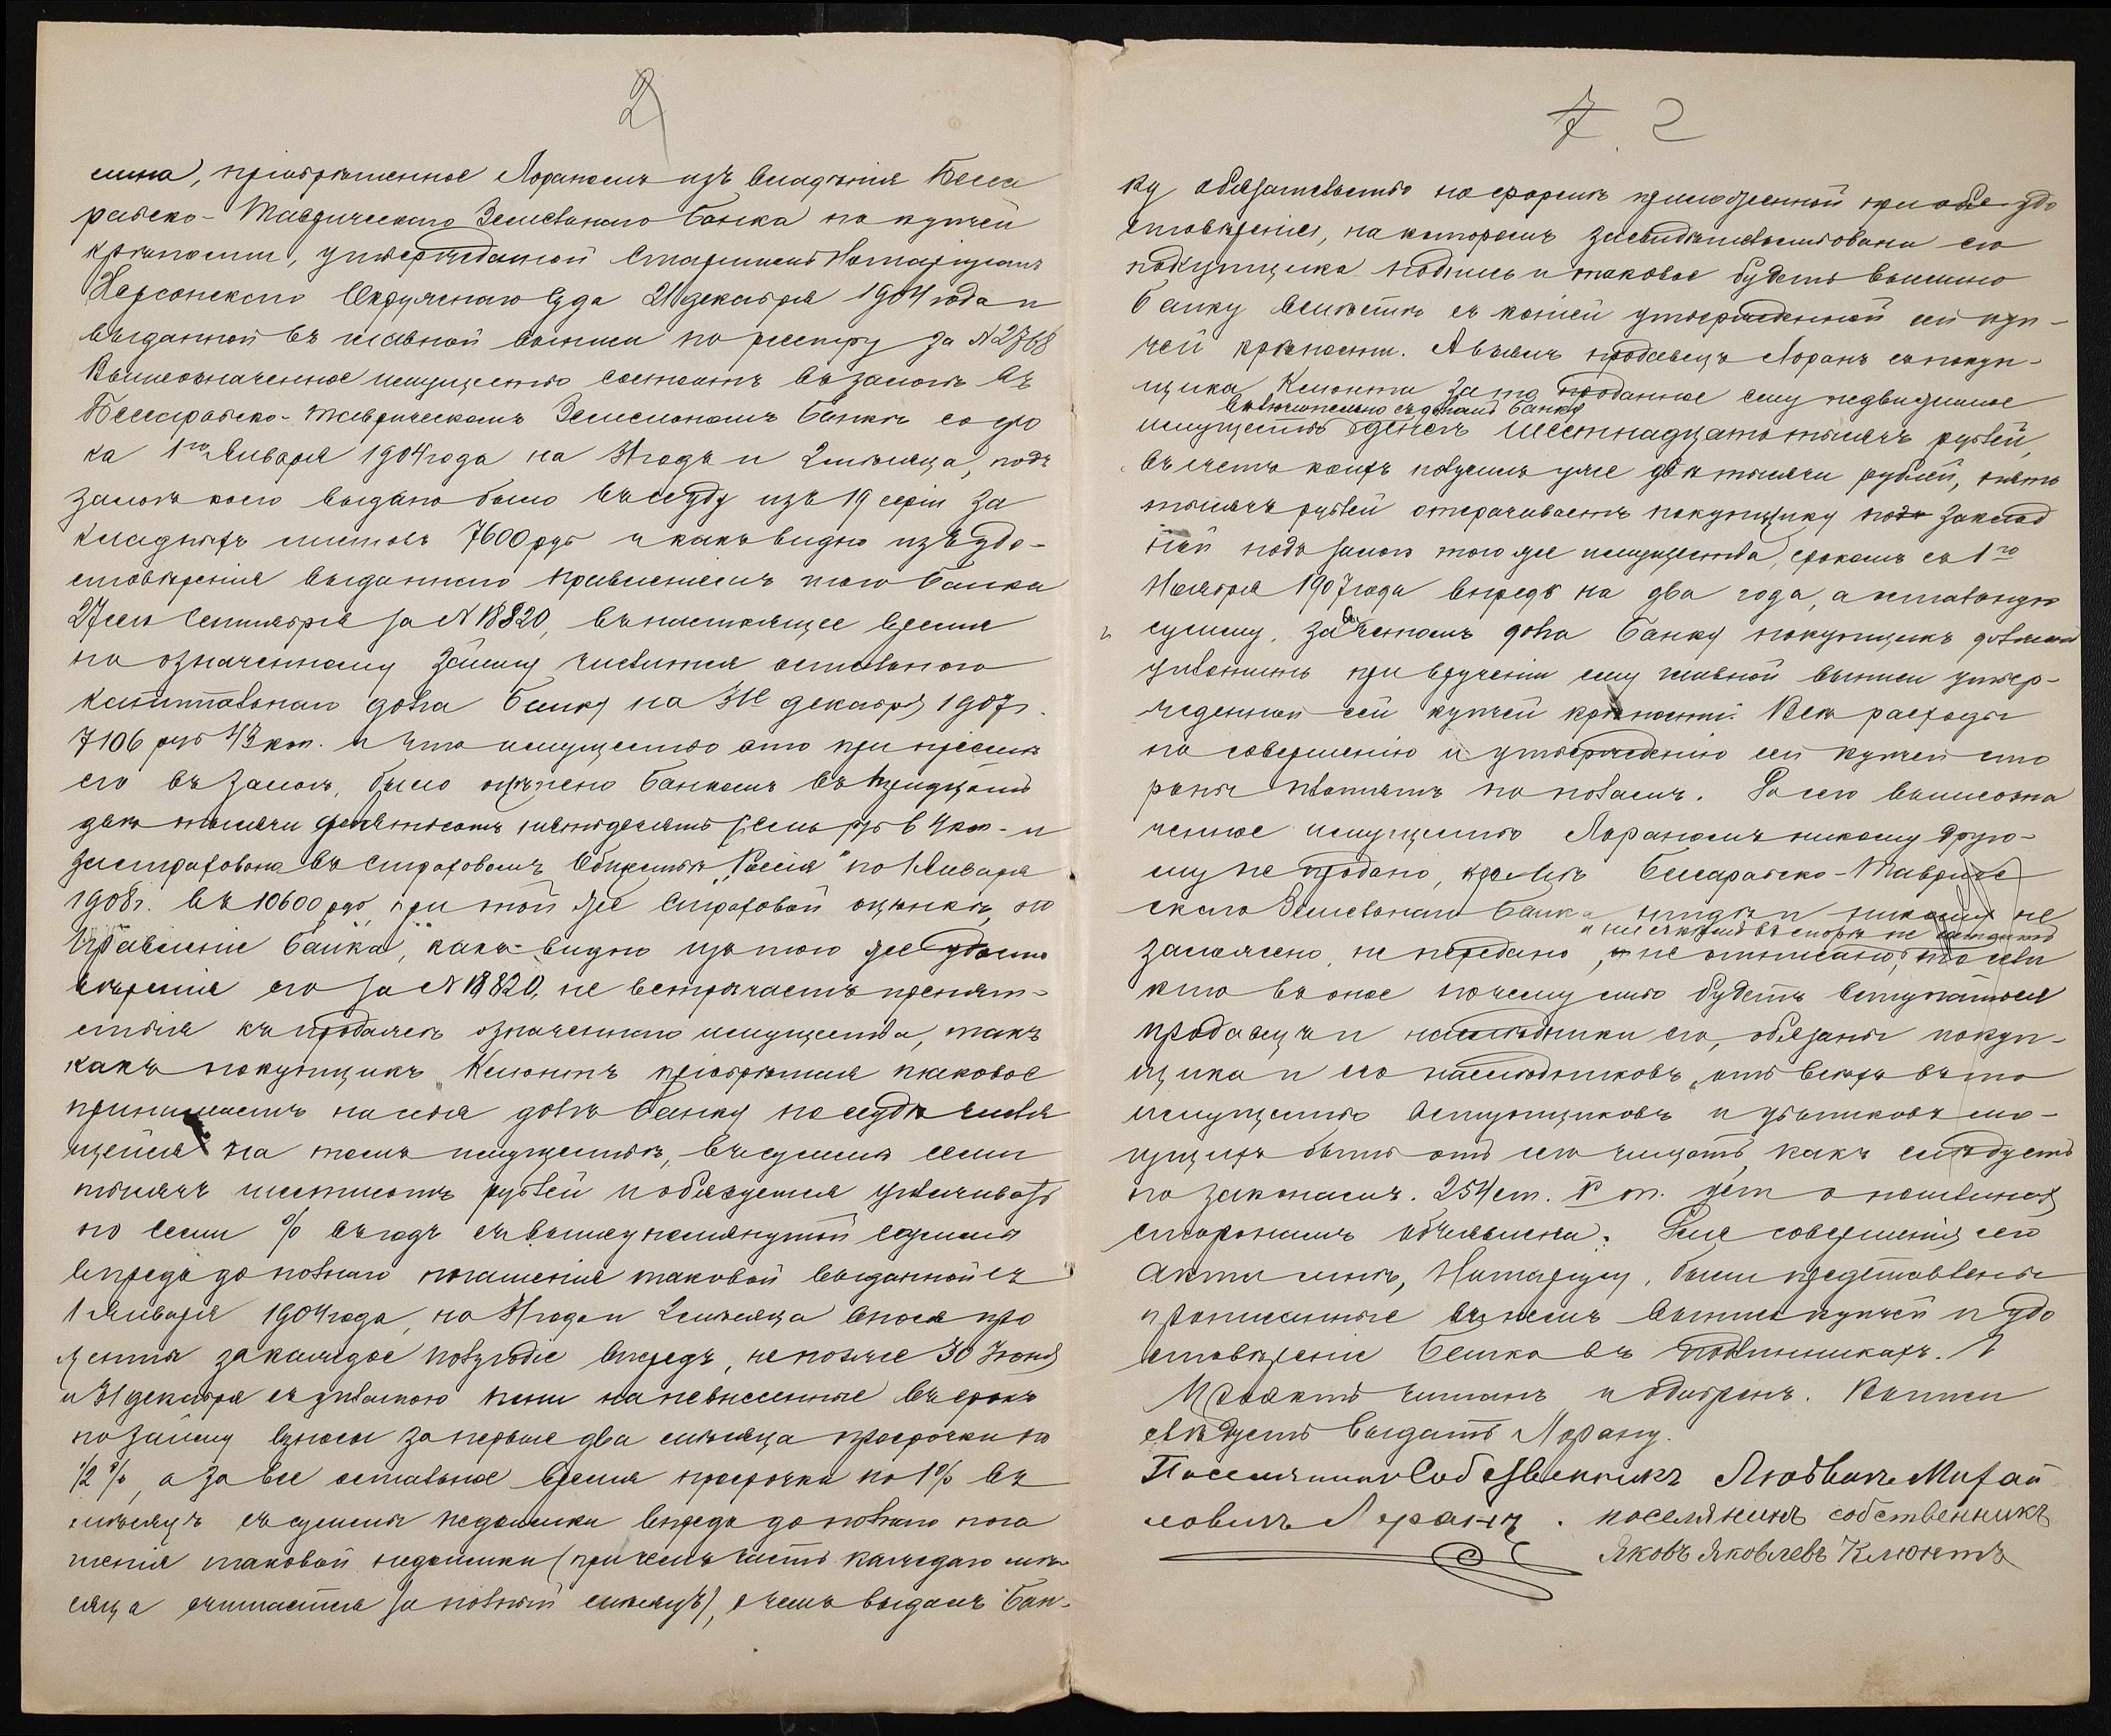 2
сина, пріобрѣтенное Лораномъ изъ владѣнія Бесса
рабско-Таврическаго Земельнаго Банка по купчей
крѣпости, утвержденной Старшимъ Нотаріусомъ
Херсонскаго Окружнаго Суда 21 декабря 1904 года и
выданной въ главной выписи по реестру за №2768
Вышеозначенное имущество состоитъ въ залогѣ въ
Бессарабско-Таврическомъ Земельномъ Банкѣ со сро
ка 1го Января 1904 года на года и 2 мѣсяца, подъ
залогъ коего выдано было въ ссуду изъ 19 серіи за
кладныхъ листовъ 7600 руб и какъ видно изъ удо-
стовѣренія выданнаго Правленіемъ того Банка
27 сего Сентября за №18820, въ настоящее время
по означенному займу числится остальнаго
капитальнаго долга Банку на декабря 1907 г.
7106 руб коп. и что имущество это при пріемѣ
его въ залогъ, было оцѣнено Банкомъ въ тридцать
двѣ тысячи девятьсотъ пятьдесятъ семь руб 64 коп. и
застраховано въ Страховомъ Обществѣ "Россія" по 1 Января
1908 г. въ 10600 руб, при той же страховой оцѣнкѣ, но
Правленіе Банка, какъ видно изъ того же удосто
вѣренія его за №18820, не встрѣчаетъ препят-
ствія къ продажѣ означеннаго имущества, такъ
какъ покупщикъ Клюнтъ пріобрѣтая таковое
принимаетъ на себя долгъ Банку по ссудѣ числя
щейся на томъ имуществѣ, въ суммѣ семи
тысячъ шестисотъ рублей и обязуется уплачивать
по семи % въ годъ съ вышеупомянутой суммы
впредь до полнаго погашенія таковой выданной съ
1 Января 1904 года, на года и 2 мѣсяца внося про
центы за каждое полугодіе впередъ, не позже 30 Іюня
и 31 декабря съ уплатою пени на невнесенные въ срокъ
по займу взносы за первые два мѣсяца просрочки по
1/2 %, а за все остальное время просрочки по 1% въ
мѣсяцъ съ суммы недоимки впредь до полнаго пога
шенія таковой недоимки (при чемъ часть каждаго мѣ-
сяца считается за полный мѣсяцъ), о чемъ выдалъ Бан-
7. 2
ку обязательство по формѣ приложенной при удо
стовѣреніи, на которомъ засвидѣтельствована его
покупщика подпись и таковое будетъ выслано
Банку вмѣстѣ съ копіей утвержденной сей куп-
чей крѣпости. А взялъ продавецъ Лоранъ съ покуп-
щика Клюнта за то проданное ему недвижимое
включительно съ долгомъ Банку
имущество денегъ шестнадцать тысячъ рублей,
въ счетъ коихъ получилъ уже двѣ тысячи рублей, пять
тысячъ рублей отсрочиваетъ покупщику подъ заклад
ной подъ залогъ того же имущества, срокомъ съ 1го
Ноября 1907 года впредь на два года, а остальную
сумму, за вычетомъ долга Банку покупщикъ долженъ
уплатить при врученіи ему главной выписи утвер-
жденной сей купчей крѣпости. Всѣ расходы
по совершенію и утвержденію сей купчей сто
роны платятъ по поламъ. До сего вышеозна
ченное имущество Лораномъ никому друго-
му не продано, кромѣ Бессарабско-Тавриче
скаго Земельнаго Банка нигдѣ и никому не
и ни въ какомъ спорѣ не
заложено, не передано, не отписано,
кто въ оное почему либо будетъ вступаться
продавецъ и наслѣдники его, обязаны покуп-
щика и его наслѣдниковъ, отъ всѣхъ въ то
имущество вступщиковъ и убытковъ мо-
гущихъ быть отъ того чищать, какъ слѣдуетъ
по законамъ. 254 ст. V т. о пошлинахъ
сторонамъ объявлена. Для совершенія сего
акта мнѣ, Нотаріусу, были представлены
прописанные въ немъ выпись купчей и удо
стовѣреніе Банка въ подлинникахъ.
Проектъ читанъ и одобренъ. Выписи
слѣдуетъ выдать Лорану.
Поселянинъ Собственникъ Людвигъ Михай
ловичъ Лоранъ. поселянинъ собственникъ
Яковъ Яковлевъ Клюнтъ